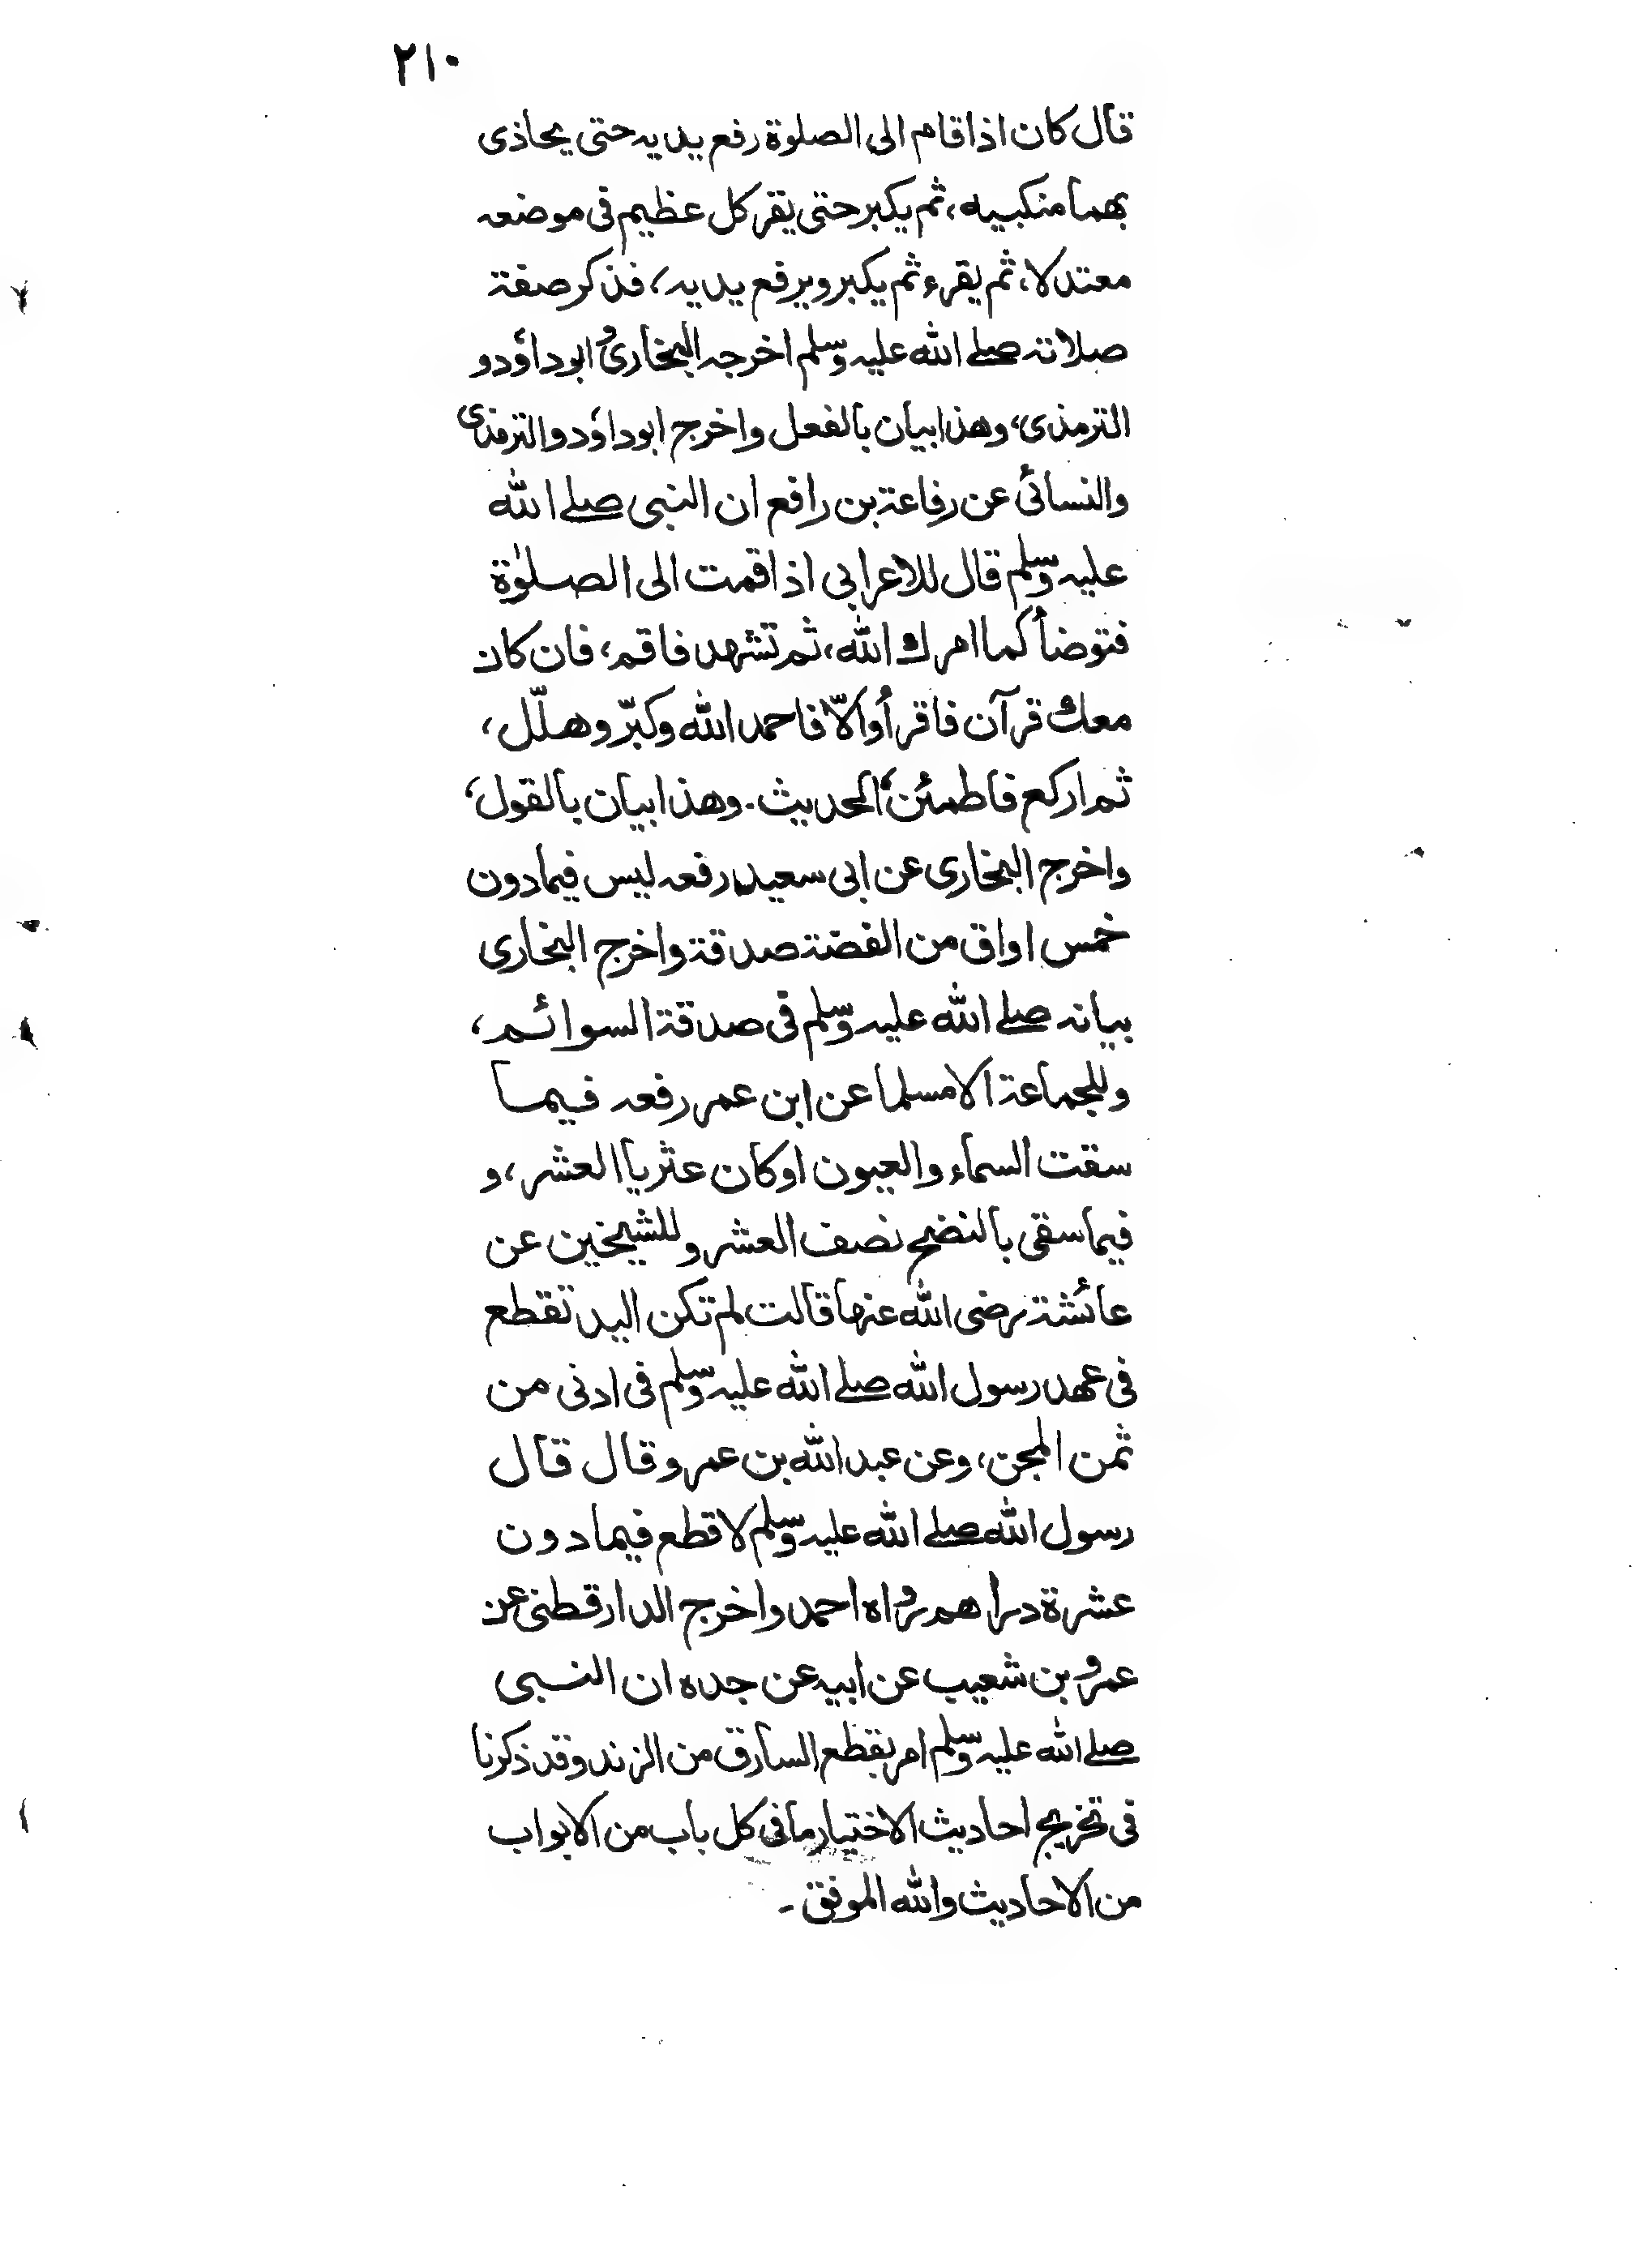 ٢١٠
قال كان اذا قام الى الصلوة رفع يديه حتى يحاذى
بهما منكبيه، ثم يكبر حتى يقر كل عظيم فى موضعه
معتدلا، ثم يقرء ثم يكبر ويرفع يديه، فذكر صفة
صلاته صلے الله عليه وسلم اخرجه البخارى و ابوداؤد و
الترمذى، وهذا بيان بالفعل واخرج ابوداؤد والترمذى
والنسائى عن رفاعة بن رافع ان النبى صلے الله
عليه وسلم قال للاعرابى اذا قمت الى الصلوٰة
فتوضأ كما امرك الله، ثم تشهد فاقم، فان كان
معك قرآن فاقرأ والّا فاحمد الله وكبّر وهلّل،
ثم اركع فاطمئن، الحديث. وهذا بيان بالقول،
واخرج البخارى عن ابى سعيد رفعه ليس فيما دون
خمس اواق من الفضة صدقة واخرج البخارى
بيانه صلے الله عليه وسلم فى صدقة السوائم،
وللجماعة الا مسلما عن ابن عمر رفعه فيما
سقت السماء والعيون او كان عثريا العشر، و
فيما سقى بالنضح نصف العشر وللشيخين عن
عائشة رضى الله عنها قالت لم تكن اليد تقطع
فى عهد رسول الله صلے الله عليه وسلم فى ادنى من
ثمن المجن، وعن عبد الله بن عمرو قال قال
رسول الله صلے الله عليه وسلم لا قطع فيما دون
عشرة دراهم رواه احمد واخرج الدارقطنى عن
عمرو بن شعيب عن ابيه عن جده ان النبى
صلے الله عليه وسلم امر بقطع السارق من الزند وقد ذكرنا
فى تخريج احاديث الاختيار ما فى كل باب من الابواب
من الاحاديث والله الموفق ۔